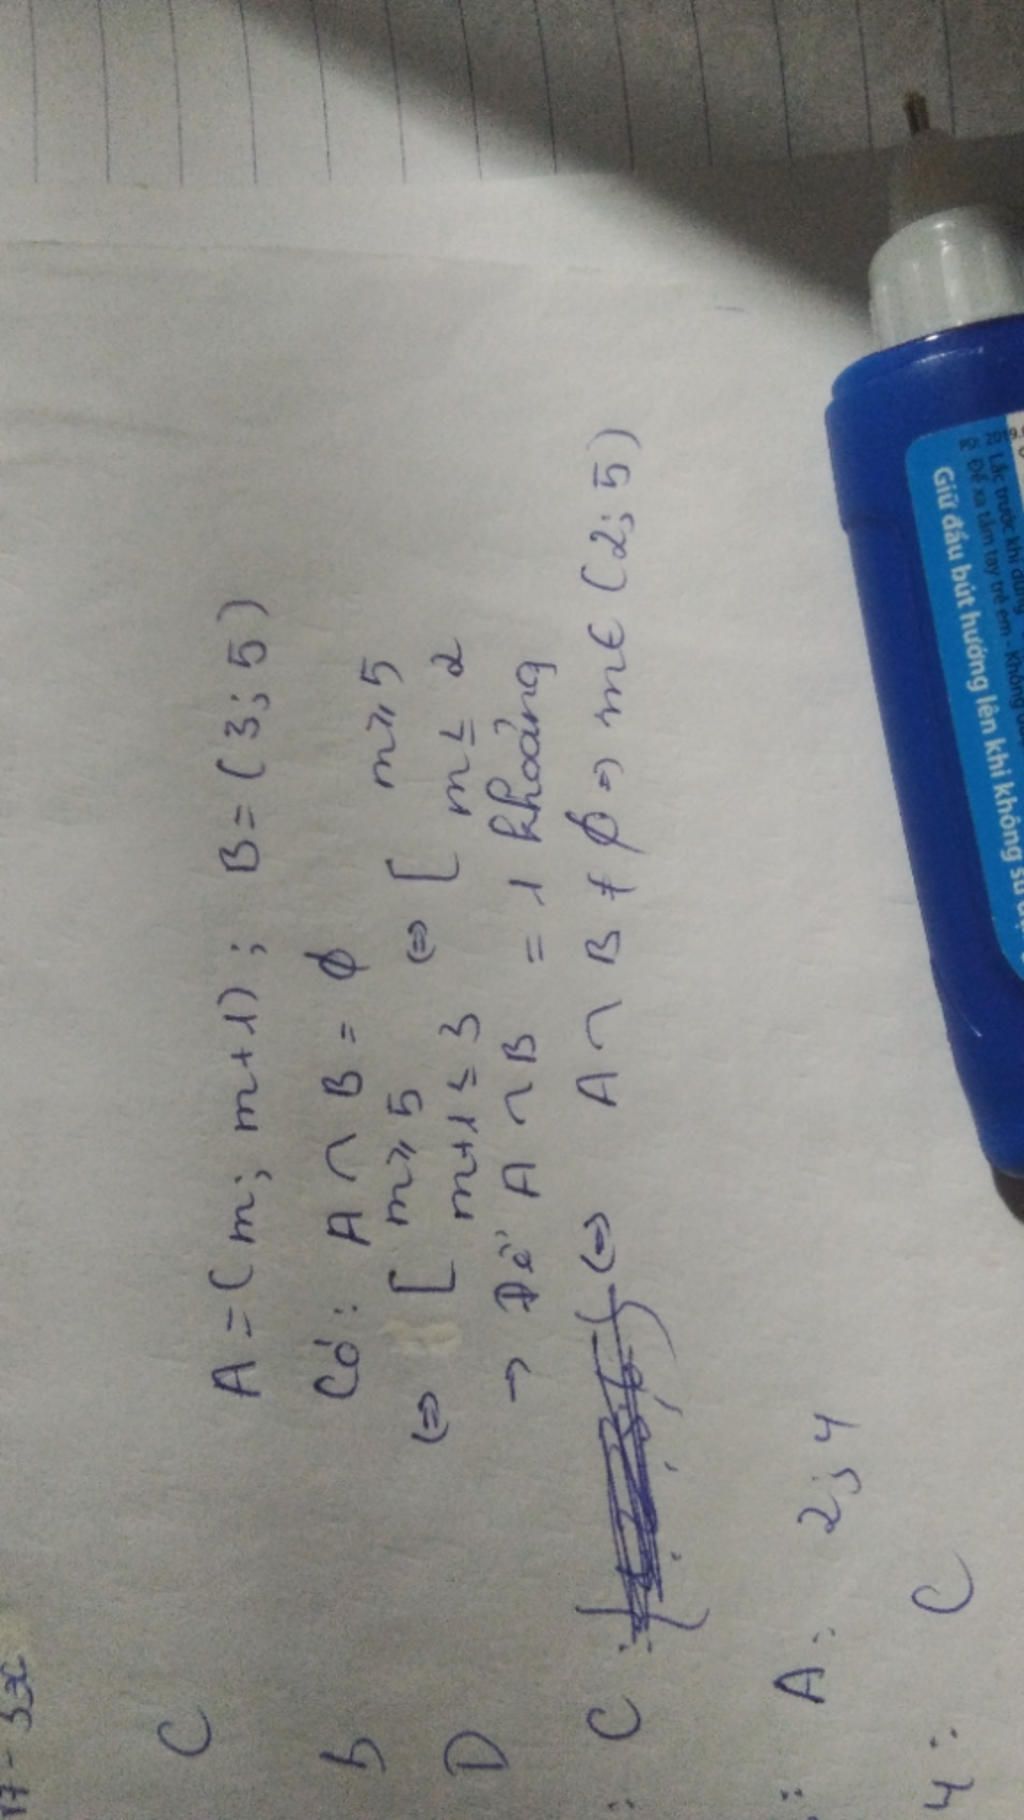 C
A = (m; m+1); B = (3; 5)
b
Có: A ∩ B = ∅
D
⇔ [ m ⩾ 5 ⇔ [ m ⩾ 5
m+1 ≤ 3 m ≤ 2
→ Để A ∩ B = 1 khoảng
: C : ⇔ A ∩ B ≠ ∅ ⇒ m ∈ (2; 5)
: A: 2; 4
4: C
Lắc trước khi dùng
Để xa tầm tay trẻ em - Không
Giữ đầu bút hướng lên khi không sử